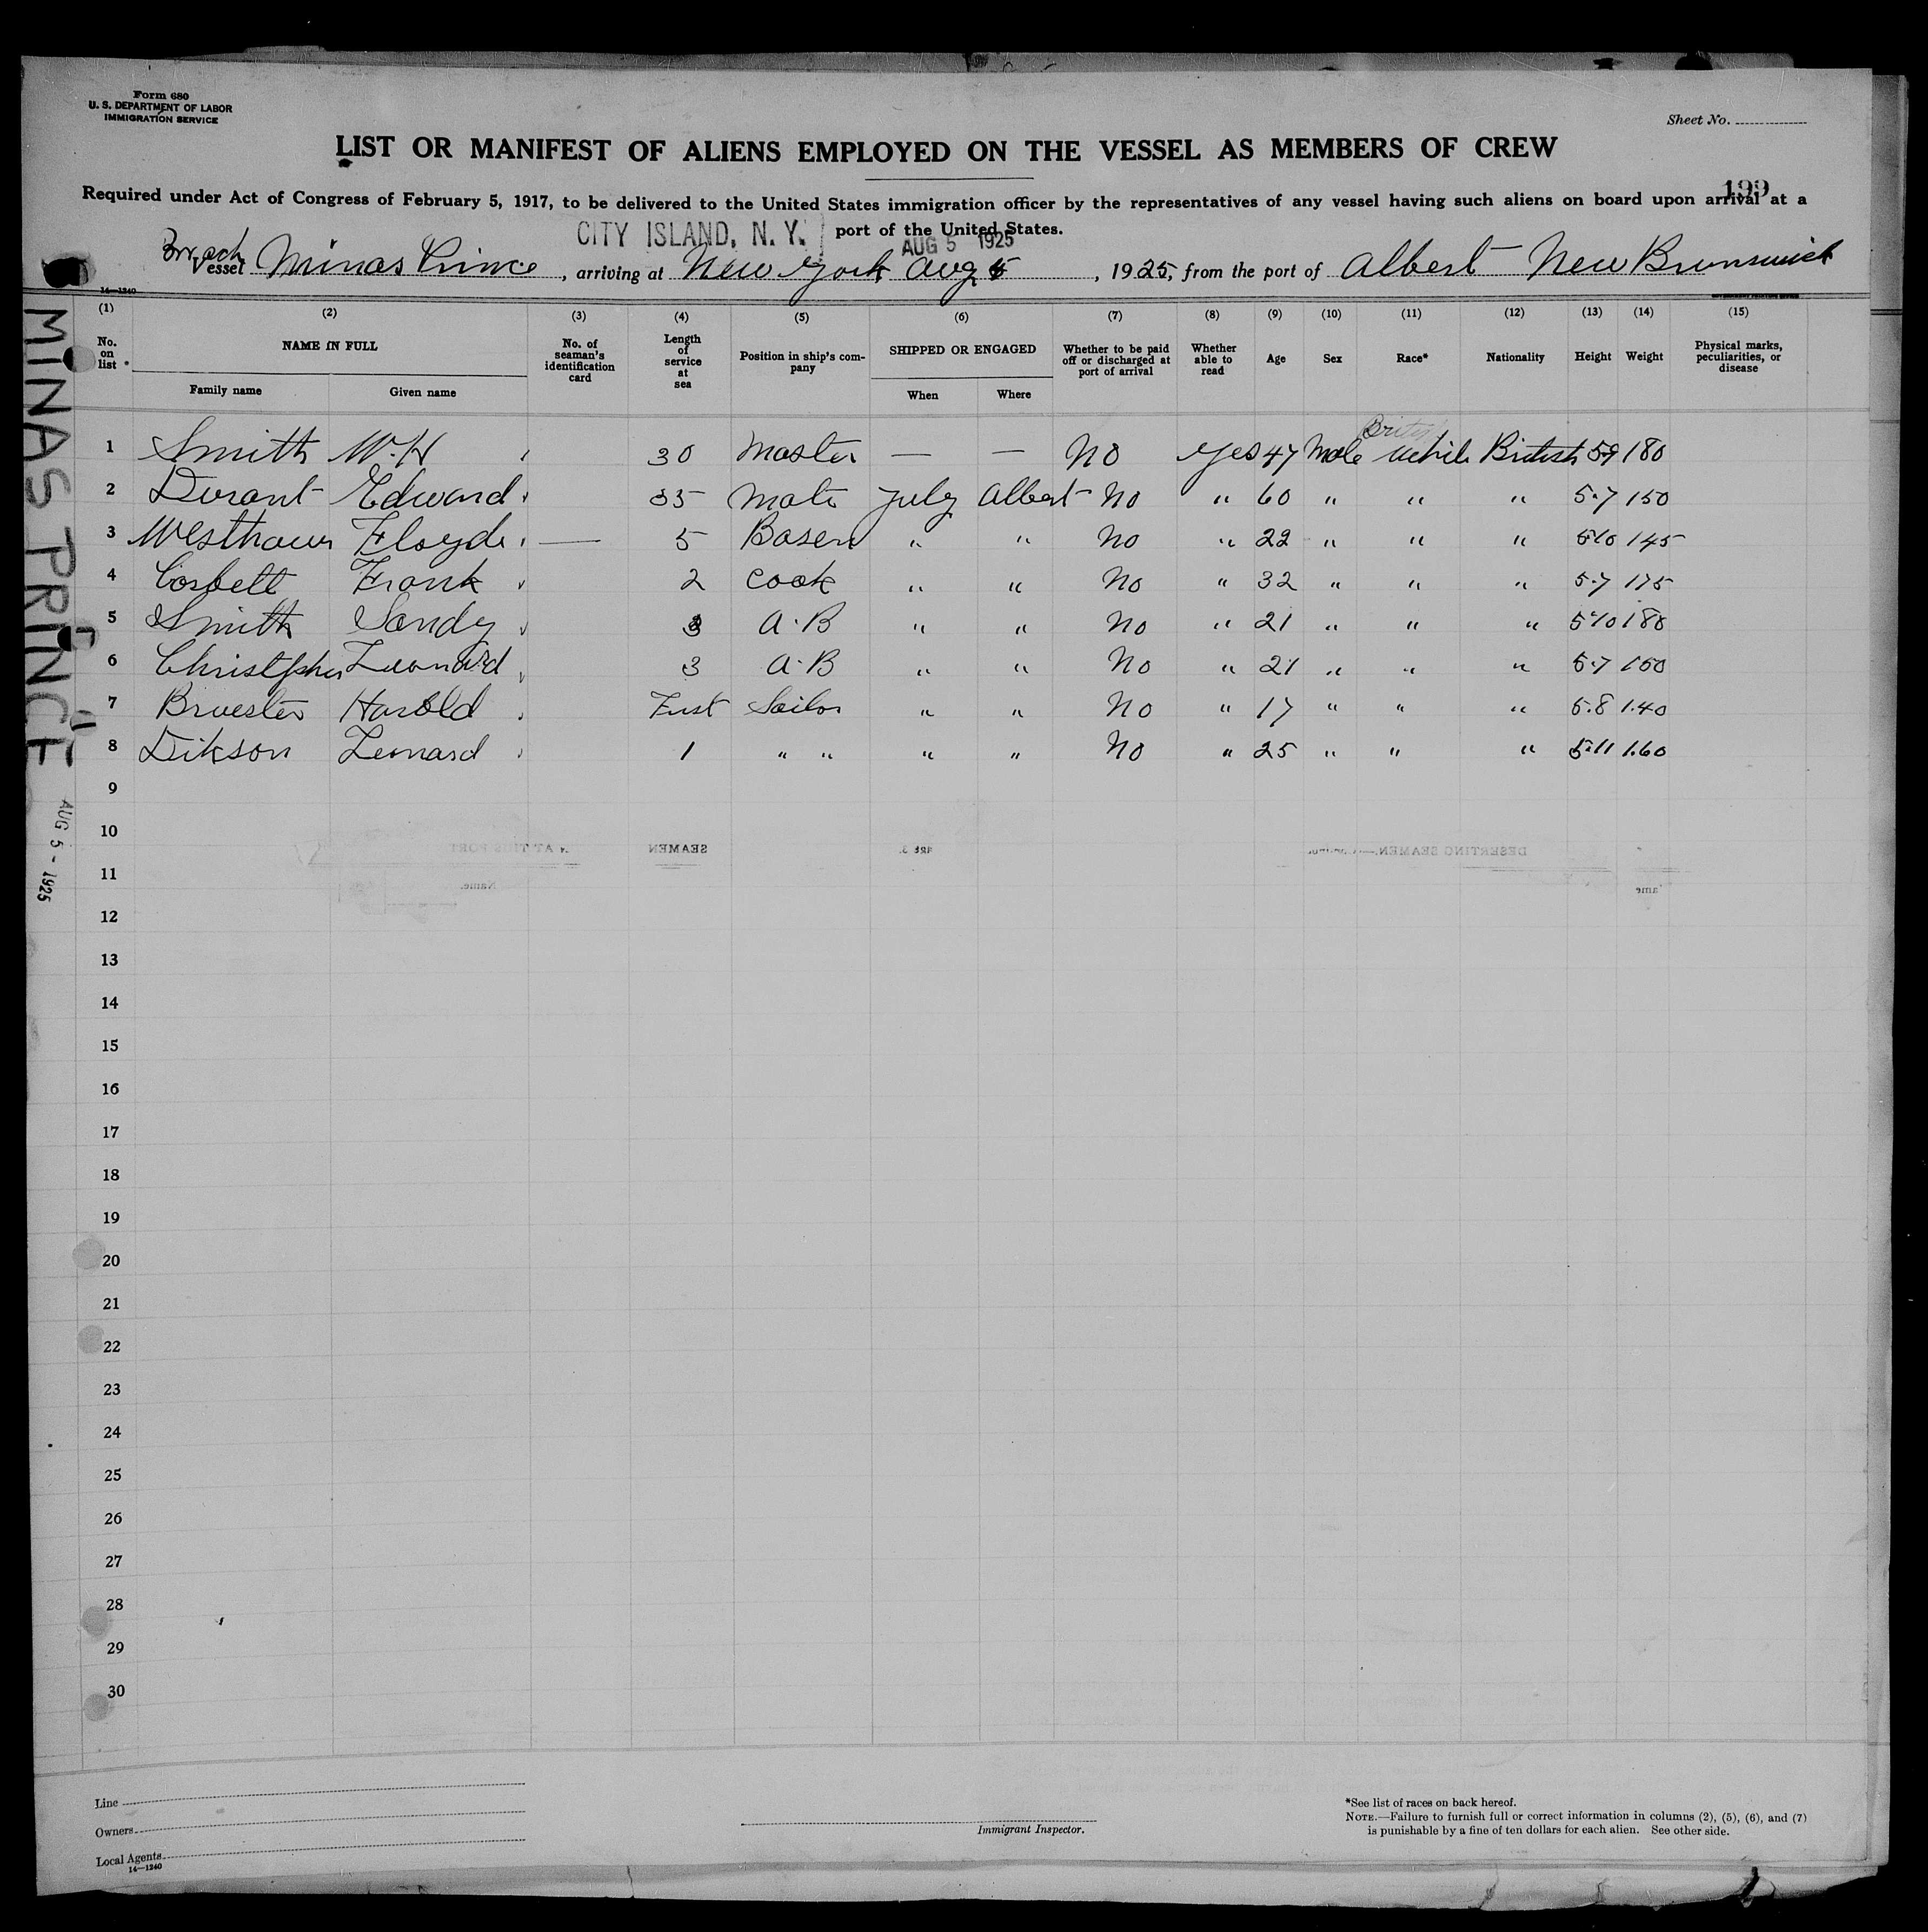 Form 680
U. S. DEPARTMENT OF LABOR
IMMIGRATION SERVICE
Sheet No.
LIST OR MANIFEST OF ALIENS EMPLOYED ON THE VESSEL AS MEMBERS OF CREW
199
Required under Act of Congress of February 5, 1917, to be delivered to the United States immigration officer by the representatives of any vessel having such aliens on board upon arrival at a
CITY ISLAND, N. Y. port of the United States.
AUG 5 1925
Vessel Minas Prince, arriving at New York Aug 5, 1925, from the port of Albert New Brunswick
14—1240
(1) (2) (3) (4) (5) (6) (7) (8) (9) (10) (11) (12) (13) (14) (15)
No. on list * NAME IN FULL No. of seaman's identification card Length of service at sea Position in ship's company SHIPPED OR ENGAGED Whether to be paid off or discharged at port of arrival Whether able to read Age Sex Race* Nationality Height Weight Physical marks, peculiarities, or disease
Family name Given name When Where
1 Smith W. H 30 Master — — No Yes 47 Male White British 5-9 180
2 Durant Edward 35 Mate July Albert No " 60 " " " 5-7 150
3 Westhaver Floyd — 5 Bosen " " No " 22 " " " 5-10 145
4 Corbett Frank 2 Cook " " No " 32 " " " 5-7 175
5 Smith Sandy 3 A.B " " No " 21 " " " 5-10 180
6 Leonard 3 A.B " " No " 21 " " " 5-7 150
7 Harold First Sailor " " No " 17 " " " 5.8 1.40
8 Dikson Leonard 1 " " " " No " 25 " " " 5-11 1.60
9
10
11
12
13
14
15
16
17
18
19
20
21
22
23
24
25
26
27
28
29
30
MINAS PRINCE
AUG 5 - 1925
Line
Owners
Local Agents
14—1240
Immigrant Inspector.
*See list of races on back hereof.
NOTE.—Failure to furnish full or correct information in columns (2), (5), (6), and (7)
is punishable by a fine of ten dollars for each alien. See other side.